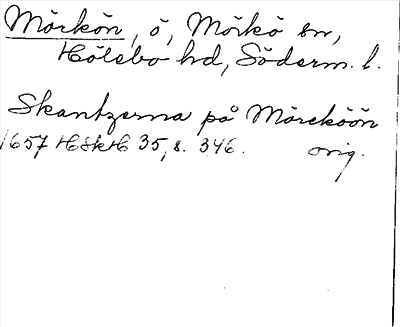 Mörkön, ö, Mörkö sn,
Hölebo hd, Söderm. l.
Skantzerna på Mörcköön
1657 HSkH 35, s. 346. orig.